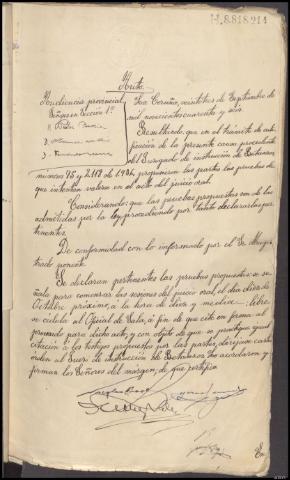 H.8.818.214
Auto
Audiencia provincial
Señores Sección 1ª
La Coruña, veintitres de Septiembre de
mil novecientos cuarenta y seis.
Resultando, que en el trámite de cali-
ficación de la presente causa procedente
del Juzgado de instrucción de Betanzos,
número 75 y 2.119 de 1946, propusieron las partes las pruebas de
que intentan valerse en el acto del juicio oral.
Considerando: que las pruebas propuestas son de las
admitidas por la ley procediendo por tanto declararlas per-
tinentes.
De conformidad con lo informado por el Sr. Magis-
trado ponente.
Se declaran pertinentes las pruebas propuestas: se se-
ñala para comenzar las sesiones del juicio oral el día diez de
Octubre próximo, a la hora de diez y media
se cédula al Oficial de Sala, a fin de que cite en forma al
procesado para dicho acto, y con objeto de que se practique igual
citación a los testigos propuestos por las partes, diríjase carta
orden al Juez de instrucción de Betanzos. Lo acordaron y
firman los Señores del margen, de que certifico